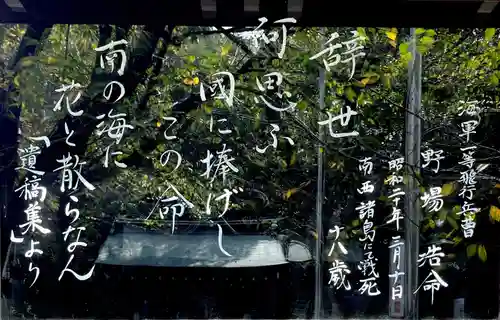 海軍一等飛行兵曹
野場 浩命
昭和二十年三月十日
南西諸島にて戦死
十八歳
辞世
何思ふ
国に捧げし
この命
南の海に
花と散らなん
「遺稿集」より